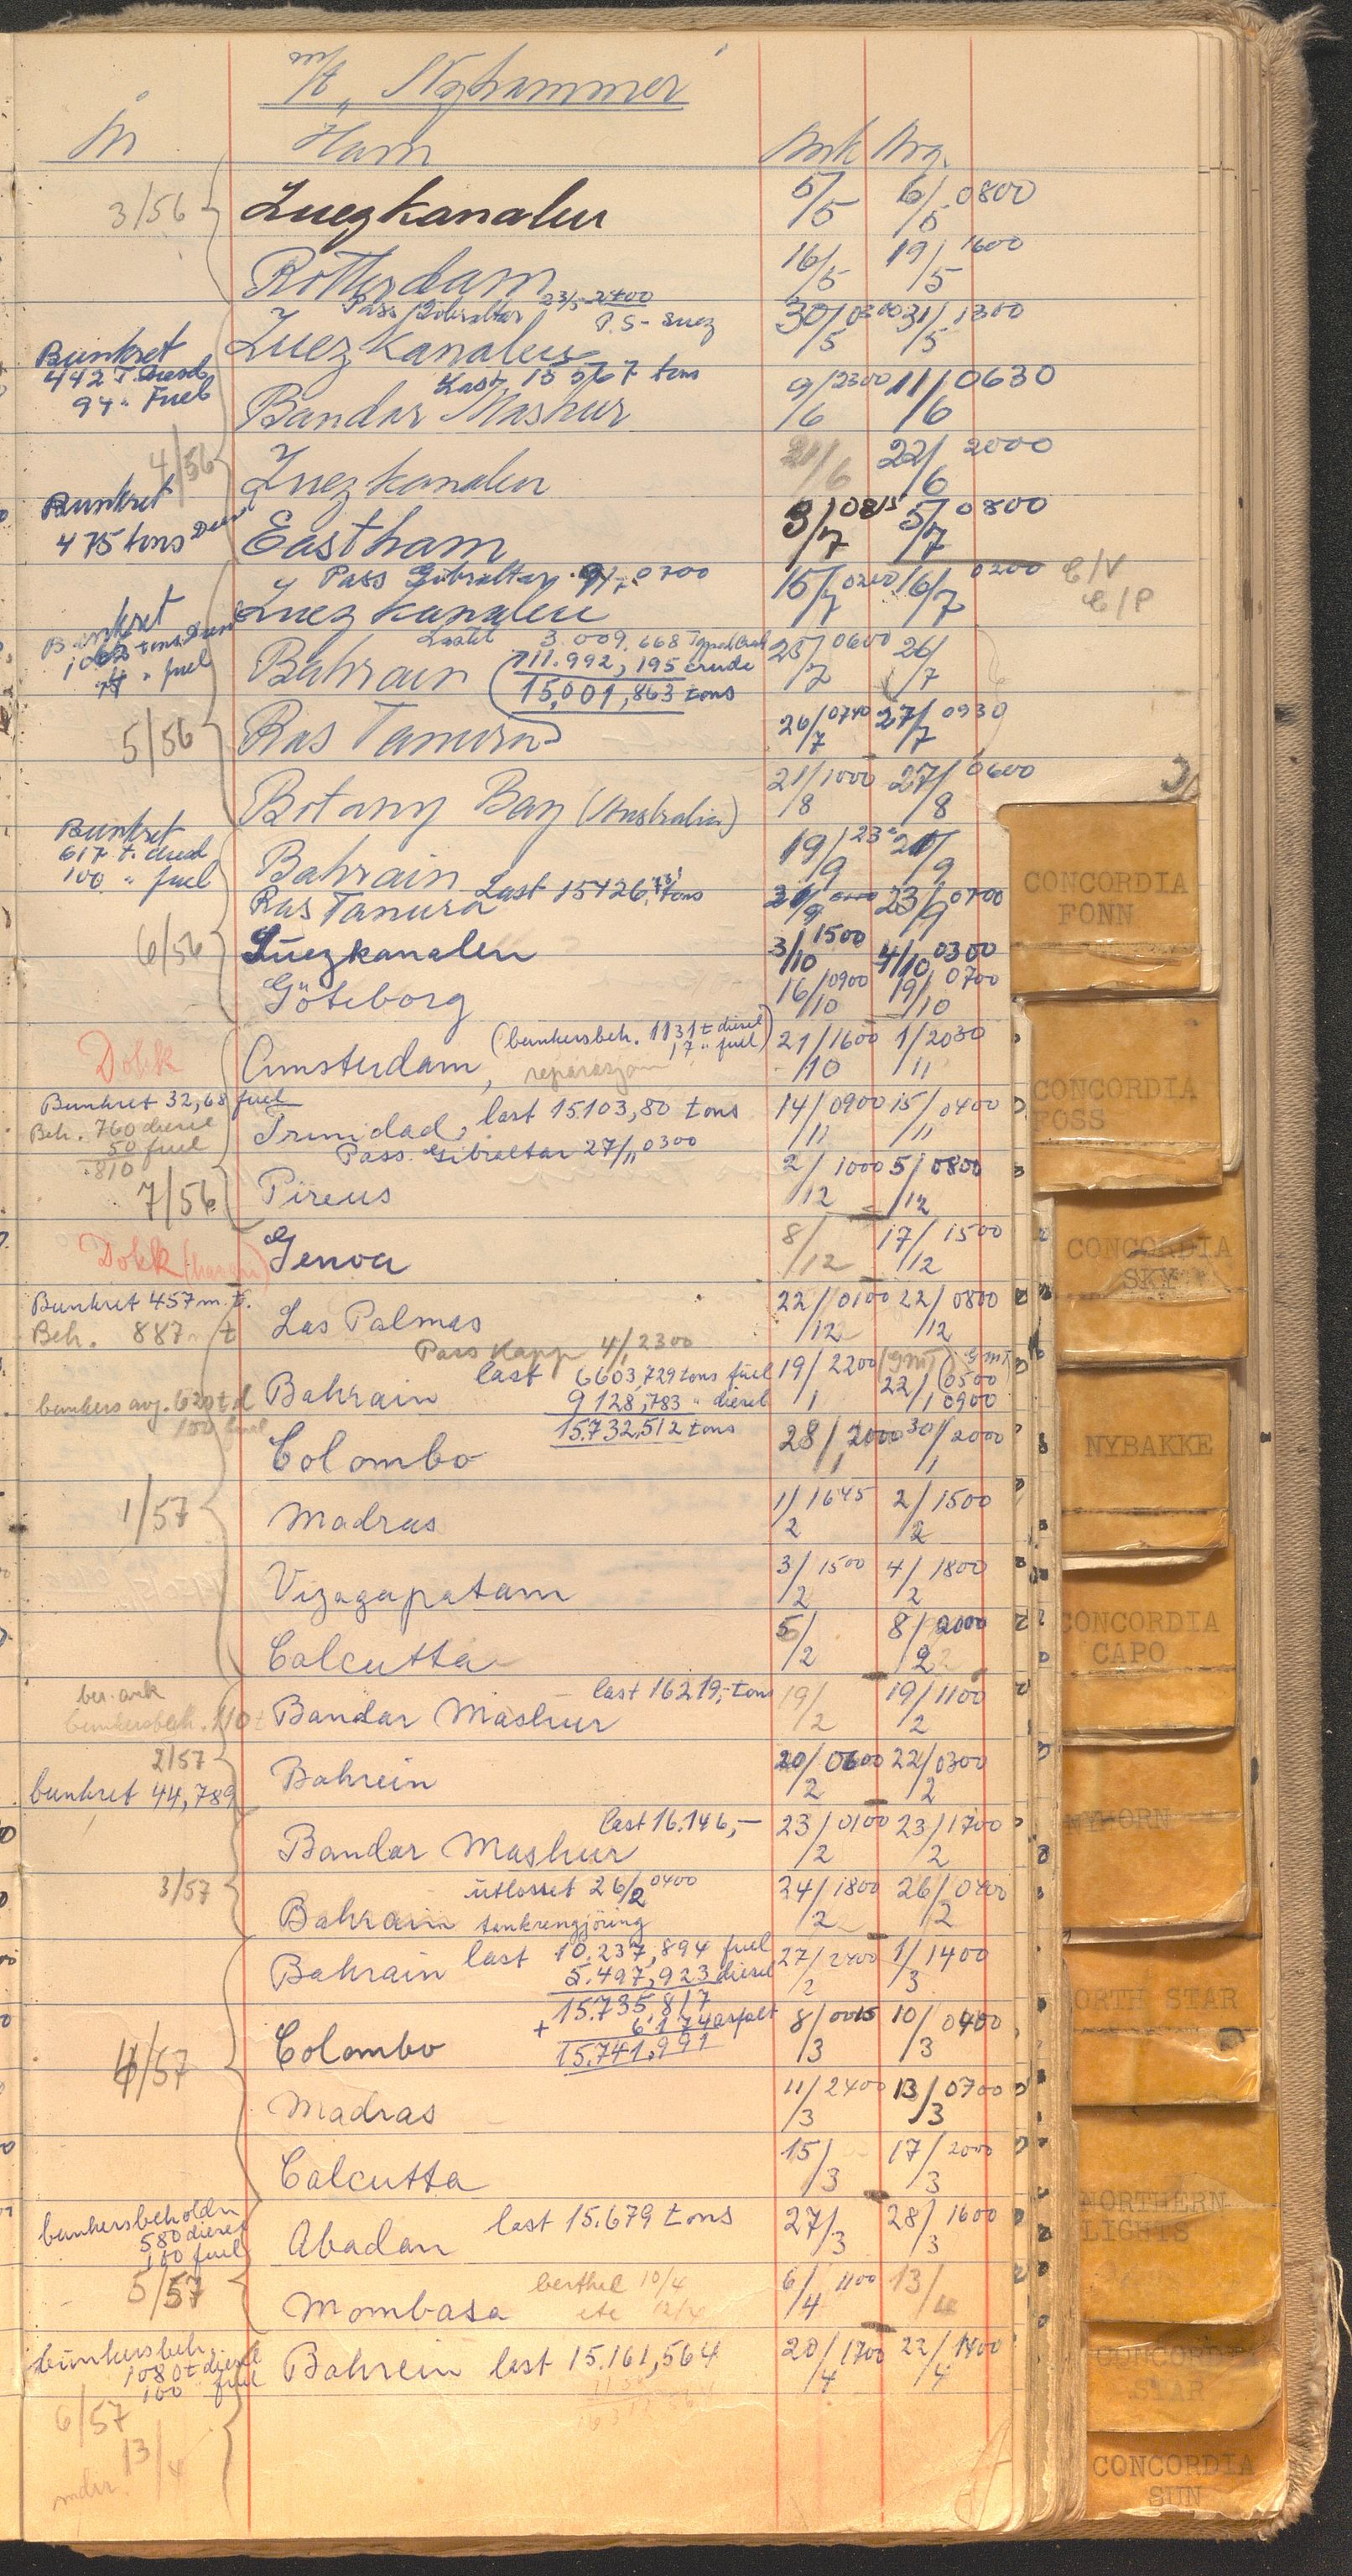 m/t "Nyhammer"
År Havn Ank Avg.
3/56 Suezkanalen 5/5 6/5 0800
Rotterdam 16/5 19/5 1600
Pass Gibraltar 23/5 2400
P.S - Suez
Suezkanalen 30/5 0300 31/5 1300
Bunkret
442 T. Diesel
94 " Fuel
Last, 15567 tons
Bandar Mashur 9/6 2300 11/6 0630
4/56 Suezkanalen 21/6 22/6 2000
Bunkret
475 tons Diesel
Eastham 3/7 0815 5/7 0800
Pass Gibraltar 9/7 0700
Suezkanalen 15/7 0200 16/7 0200 C/V
C/P
Bunkret
1062 tons Diesel
" fuel
Lastet 3.009,668
Bahrain 11.992,195 crude 25/7 0600 26/7
15,001,863 tons
5/56 Ras Tanura 26/7 0740 27/7 0930
Botany Bay (Australia) 21/8 1000 27/8 0600
Bunkret
617 t. diesel
100 " fuel
Bahrain 19/9 23 21/9
Ras Tanura Last 15426,73 tons 21/9 23/9 0700
6/56 Suezkanalen 3/10 1500 4/10 0300
Göteborg 16/10 0900 19/10 0700
Dokk Amsterdam, (bunkersbeh. 1131 t diesel 21/10 1600 1/11 2030
17 " fuel)
reparasjon
Bunkret 32,68 fuel
Beh. 760 diesel
50 fuel
810
Trinidad, last 15103,80 tons 14/11 0900 15/11 0400
Pass. Gibraltar 27/11 0300
7/56 Pireus 2/12 1000 5/12 0800
Dokk (havari) Genova 8/12 17/12 1500
Bunkret 457 m.t.
Beh. 887 m t
Las Palmas 22/12 0100 22/12 0800
Pass Kapp 4/1 2300
last 6603,729 tons fuel
Bahrain 9128,783 " diesel 19/1 2200 (GMT) 22/1 (0500 GMT)
0900
15.732,512 tons
bunkers avg. 620 t d
100 fuel
Colombo 28/1 2000 30/1 2000
1/57 Madras 1/2 1645 2/2 1500
Vizagapatam 3/2 1500 4/2 1800
Calcutta 5/2 8/2 2000
ber. ank
bunkersbeh. 110 t
last 16219,- tons
Bandar Mashur 19/2 19/2 1100
2/57
bunkret 44,789
Bahrein 20/2 0600 22/2 0300
last 16.146,-
Bandar Mashur 23/2 0100 23/2 1700
3/57
utlosset 26/2 0400
Bahrain tankrengjöring 24/2 1800 26/2 0400
Bahrain last 10.237,894 fuel 27/2 2400 1/3 1400
5.497,923 diesel
15.735,817
+ 6,174 asfalt
15.741,991
4/57 Colombo 8/3 0015 10/3 0400
Madras 11/3 2400 13/3 0700
Calcutta 15/3 17/3 2000
bunkersbeholdn
580 diesel
100 fuel
Abadan last 15.679 tons 27/3 28/3 1600
5/57 Mombasa berthed 10/4 6/4 1100 13/4
etc 12/4
bunkersbeh.
1080 t diesel
100 " fuel
Bahrein last 15.161,564 20/4 1700 22/4 1400
6/57
13/4
CONCORDIA
FONN
CONCORDIA
FOSS
CONCORDIA
SKY
NYBAKKE
CONCORDIA
CAPO
NYHORN
NORTH STAR
NORTHERN
LIGHTS
CONCORDIA
STAR
CONCORDIA
SUN